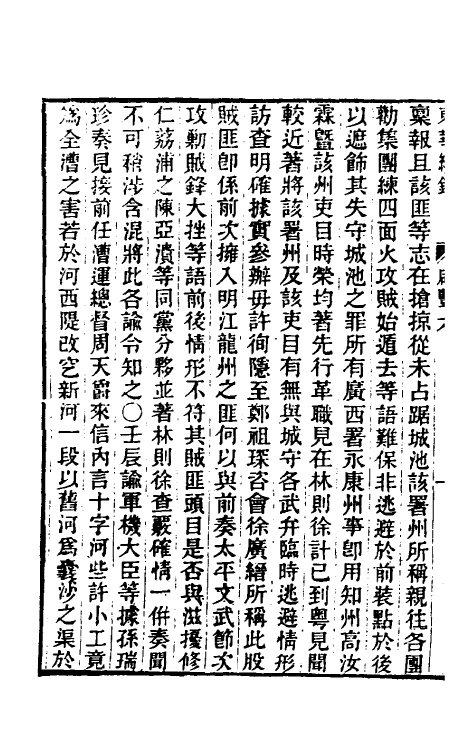 東華續錄 咸豐六 一
稟報且該匪等志在搶掠從未占踞城池該署州所稱親往各團
勸集團練四面火攻賊始遁去等語難保非逃避於前裝點於後
以遮飾其失守城池之罪所有廣西署永康州事卽用知州高汝
霖曁該州吏目時榮均著先行革職見在林則徐計已到粵見聞
較近著將該署州及該吏目有無與城守各武弁臨時逃避情形
訪查明確據實參辦毋許徇隱至鄭祖琛咨會徐廣縉所稱此股
賊匪卽係前次擁入明江龍州之匪何以與前奏太平文武節次
攻勦賊鋒大挫等語前後情形不符其賊匪頭目是否與滋擾修
仁荔浦之陳亞潰等同黨分夥並著林則徐查覈確情一併奏聞
不可稍涉含混將此各諭令知之〇壬辰諭軍機大臣等據孫瑞
珍奏見接前任漕運總督周天爵來信內言十字河些許小工竟
爲全漕之害若於河西隄改空新河一段以舊河爲囊沙之渠於